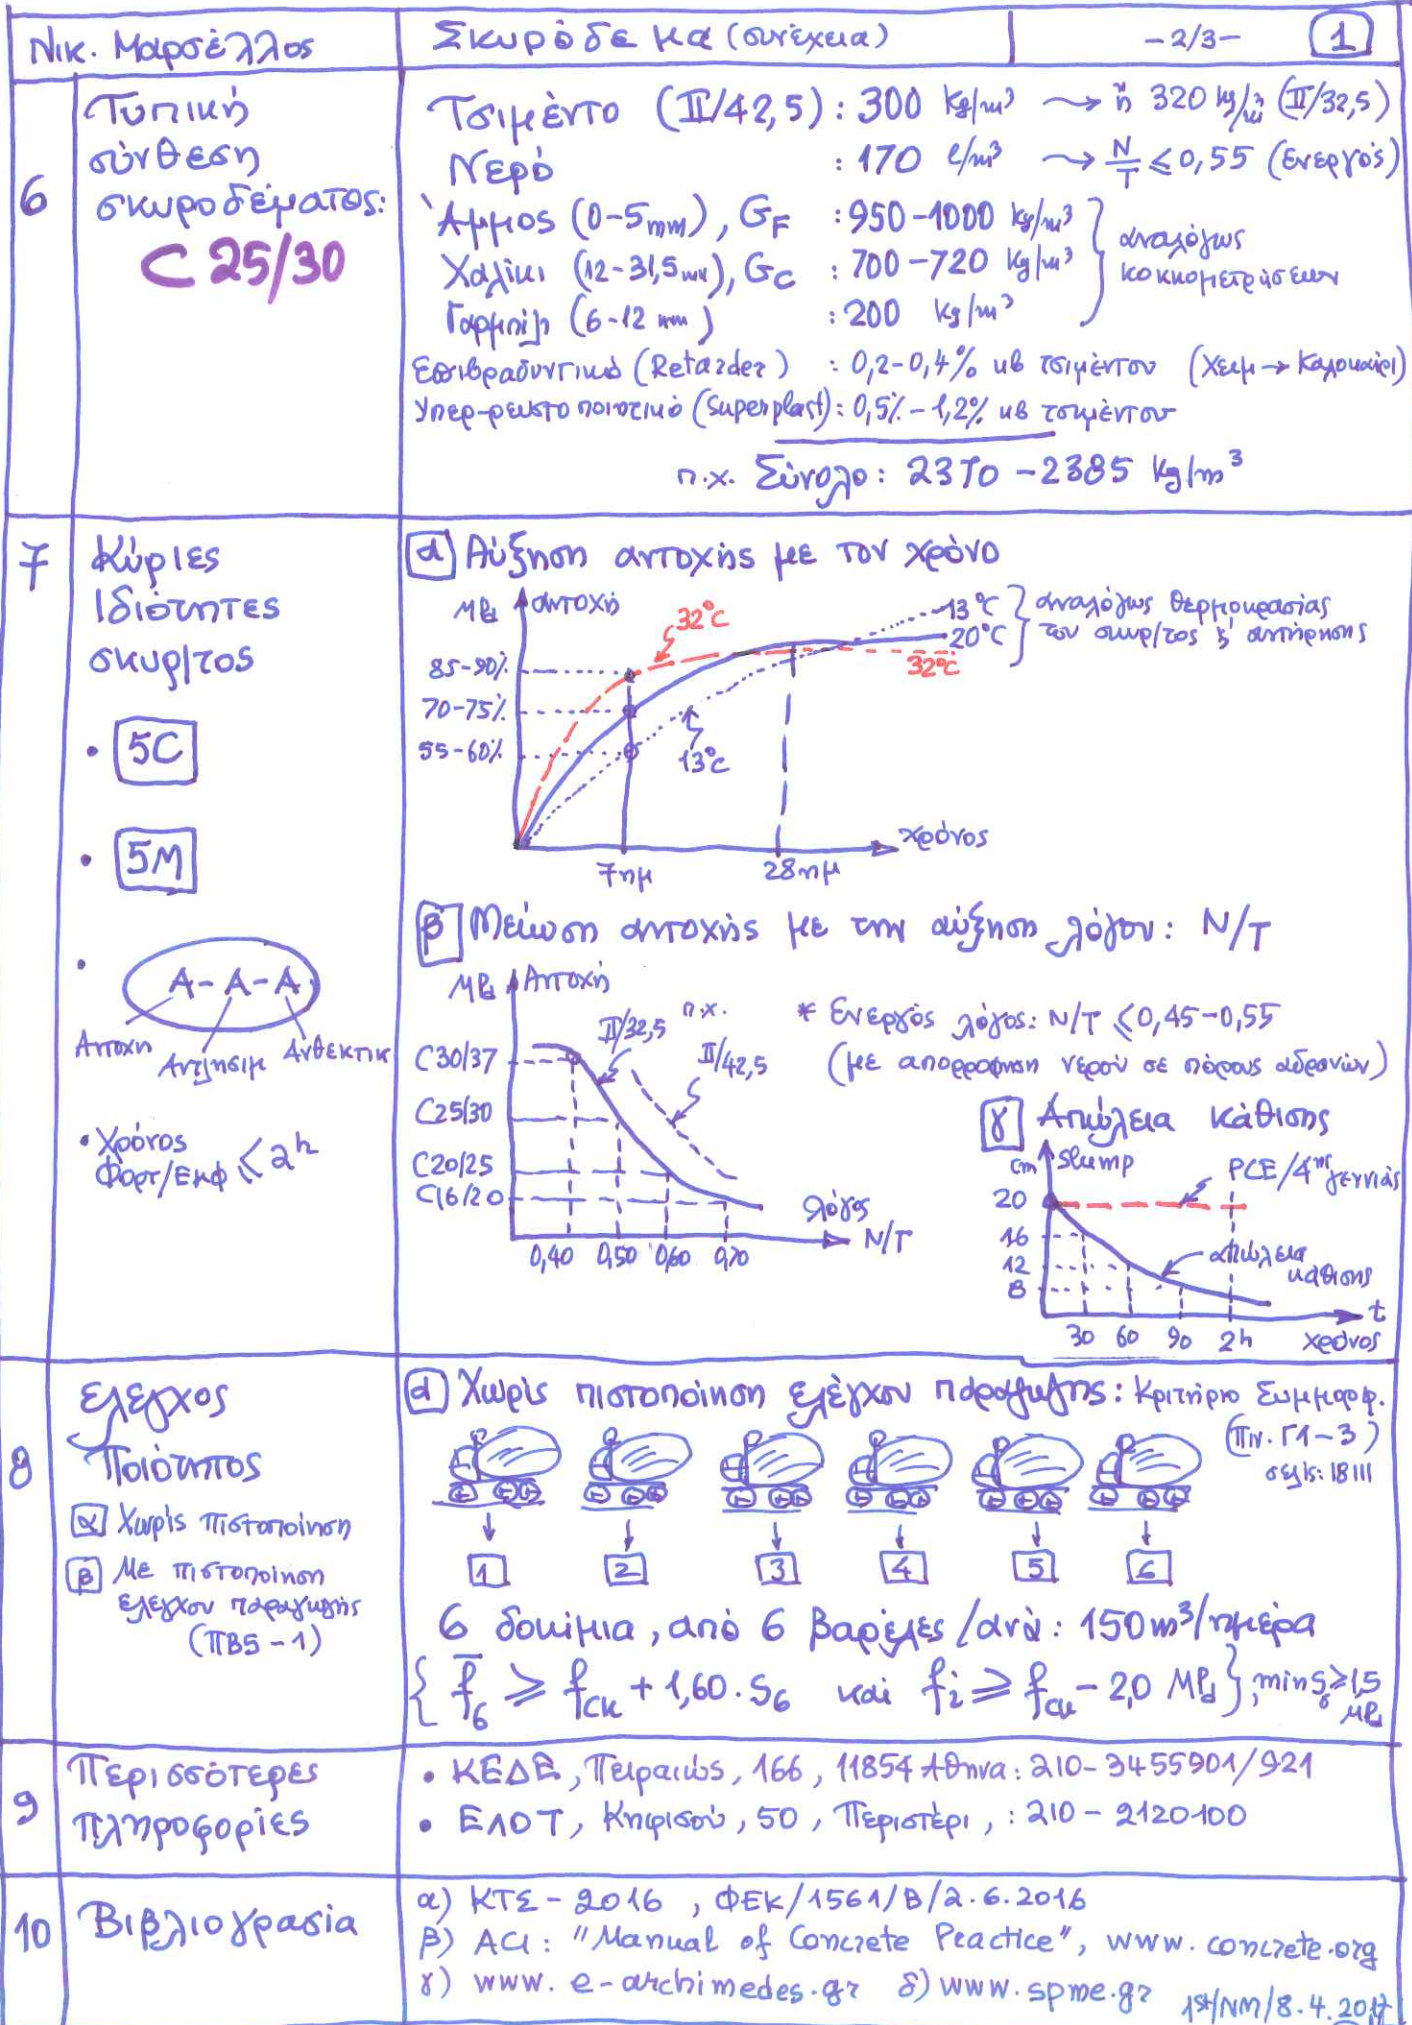 Νικ. Μαρσέλλος
Σκυρόδεμα (συνέχεια)
-2/3-
1
6
Τυπική
σύνθεση
σκυροδέματος:
C 25/30
Τσιμέντο (II/42,5) : 300 kg/m³ → ή 320 kg/m³ (II/32,5)
Νερό : 170 l/m³ → N/T ≤ 0,55 (Ενεργός)
Άμμος (0-5mm), GF : 950-1000 kg/m³
Χαλίκι (12-31,5mm), Gc : 700-720 kg/m³
Γαρμπίλι (6-12 mm) : 200 kg/m³
αναλόγως
κοκκομετρήσεων
Επιβραδυντικό (Retarder) : 0,2-0,4% κβ τσιμέντου (Χειμ → Καλοκαίρι)
Υπερ-ρευστοποιητικό (Superplast): 0,5% - 1,2% κβ τσιμέντου
π.χ. Σύνολο: 2370 - 2385 kg/m³
7
Κύριες
Ιδιότητες
σκυρ/τος
• 5C
• 5M
• Α-Α-Α
Αντοχη Αντλησιμ Ανθεκτικ
• Χρόνος
Φορτ/Εκφ ≤ 2h
α Αύξηση αντοχής με τον χρόνο
MPa αντοχή
32°C
13°C
20°C
32°C
αναλόγως θερμοκρασίας
του σκυρ/τος & συντήρησης
85-90%
70-75%
55-60%
13°C
χρόνος
7ημ
28ημ
β Μείωση αντοχής με την αύξηση λόγου: N/T
MPa Αντοχή
II/32,5
π.χ.
II/42,5
* Ενεργός λόγος: N/T ≤ 0,45-0,55
(με απορρόφηση νερού σε πόρους αδρανών)
C30/37
C25/30
C20/25
C16/20
λόγος
N/T
0,40 0,50 0,60 0,70
γ Απώλεια κάθισης
cm slump
PCE/4ης γεννιάς
20
16
12
8
απώλεια
κάθισης
t
30 60 90 2h χρόνος
8
Ελεγχος
Ποιότητος
α Χωρίς πιστοποίηση
β Με πιστοποίηση
ελεγχου παραγωγής
(ΠΒ5-1)
α Χωρίς πιστοποίηση ελέγχου παραγωγής: Κριτήριο Συμμορφ.
(Πιν. Γ1-3)
σελίς: 18111
1 2 3 4 5 6
6 δοκίμια, από 6 βαρέλες/ανά: 150m³/ημέρα
{ f̄6 ≥ fck + 1,60·S6 και fi ≥ fck - 2,0 MPa }, min S6 ≥ 1,5
MPa
9
Περισσότερες
πληροφορίες
• ΚΕΔΕ, Πειραιώς, 166, 11854 Αθηνα: 210-3455901/921
• ΕΛΟΤ, Κηφισού, 50, Περιστέρι, : 210-2120100
10
Βιβλιογρασία
α) ΚΤΣ-2016, ΦΕΚ/1561/Β/2.6.2016
β) ACI: "Manual of Concrete Practice", www.concrete.org
γ) www.e-archimedes.gr δ) www.spme.gr
1st/NM/8.4.2017